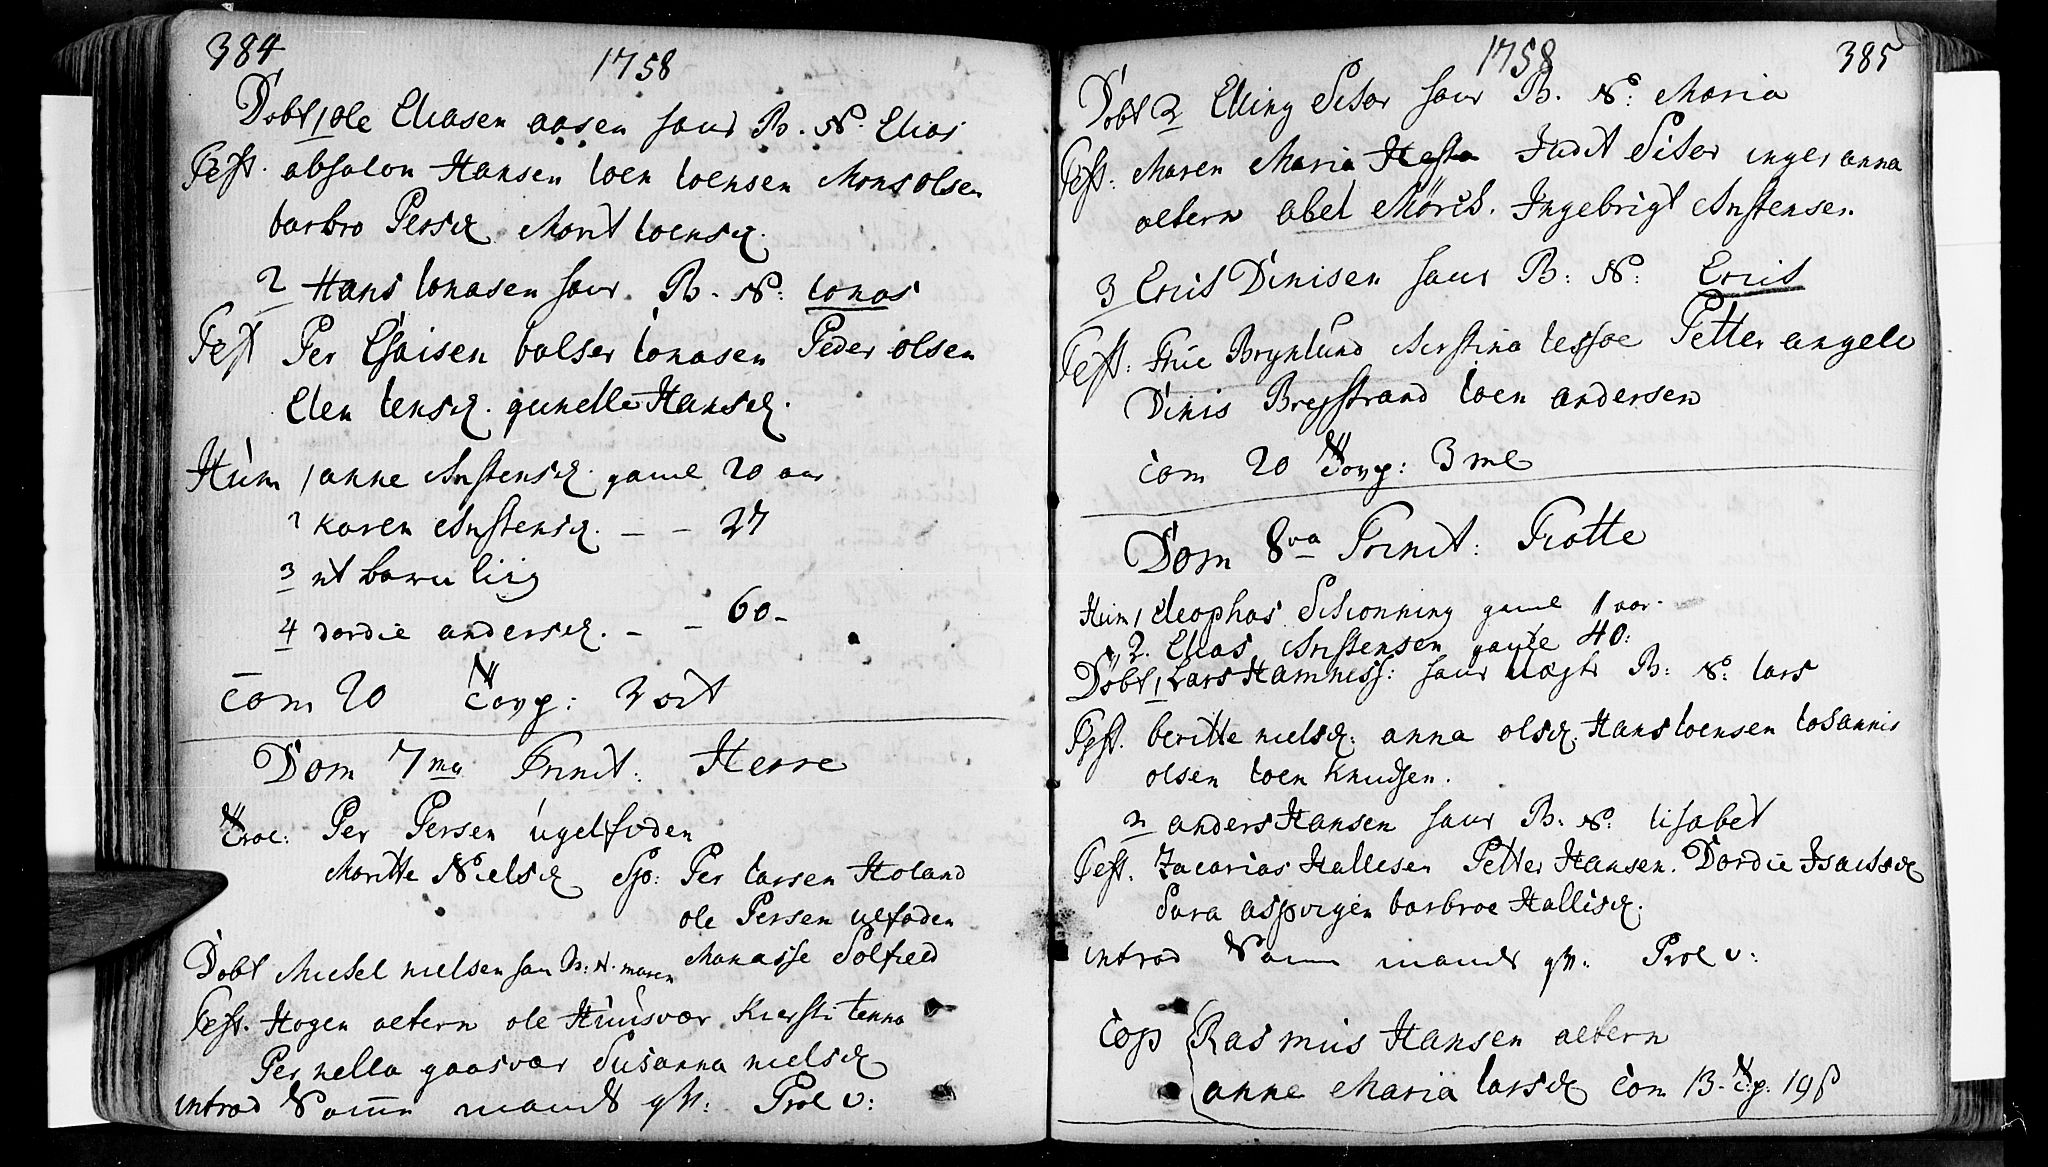 384
1758
Døbt 1 ole Eliasen aasen haus B. N. Elias
Test. absalon Hansen loen loensen Mons olsen
barbro Persd. Marit loensd.
2 Hans lonasen haus B. N: lonas
Test Per Esaisen balser lonasen Peder olsen
Elen lensd. gunelle Hansd.
Hum 1 anne Anstensd. gaml 20 aar
2 karen Anstensd. – – 27
3 et barn liig
4 dordie andersd. – – 60 –
Com 20
Dom 7ma Trinit: Herre
Per Persen ugelfoden
Maritte Nielsd Spo: Per larsen Holand
ole Persen uelfoden
Manasse Solfield
Døbt Mickel nielsen hau B: N. maren
Test. Hogen aetern ole Huusvær Kiersti tenna
Pernella gaasvær Susanna nielsd
introd Prol v:
1758
385
Døbt 2 Elling Seter haus B. N: Maria
Test: Maren Maria Judit Seter inger anna
aetern abel Mörch. Ingebrigt Anstensen
3 Erick Dinisen haus B: N: Erick
Test: Frue Brynlund Kirstina lessoe Petter angell
Dinis Breystrand loen andersen
Com 20
Dom 8va Trinit: Trotte
Hum 1 Cleophas Schonning gaml 1 aar.
2. Elias Anstensen gamle 40:
Døbt 1 Lars Hamness: haus B: N: lars
Test. beritte nielsd. anna olsd. Hans loensen lohannis
olsen loen Knudsen.
2 anders Hansen haus B. N: lisabet
Test. Zacarias Hallesen Petter Hansen. Dordie Isacksd
Sara aspvigen barbroe Hallisd.
introd Prol v:
Cop Rasmus Hansen aetern
anne Maria larsd Com 13.